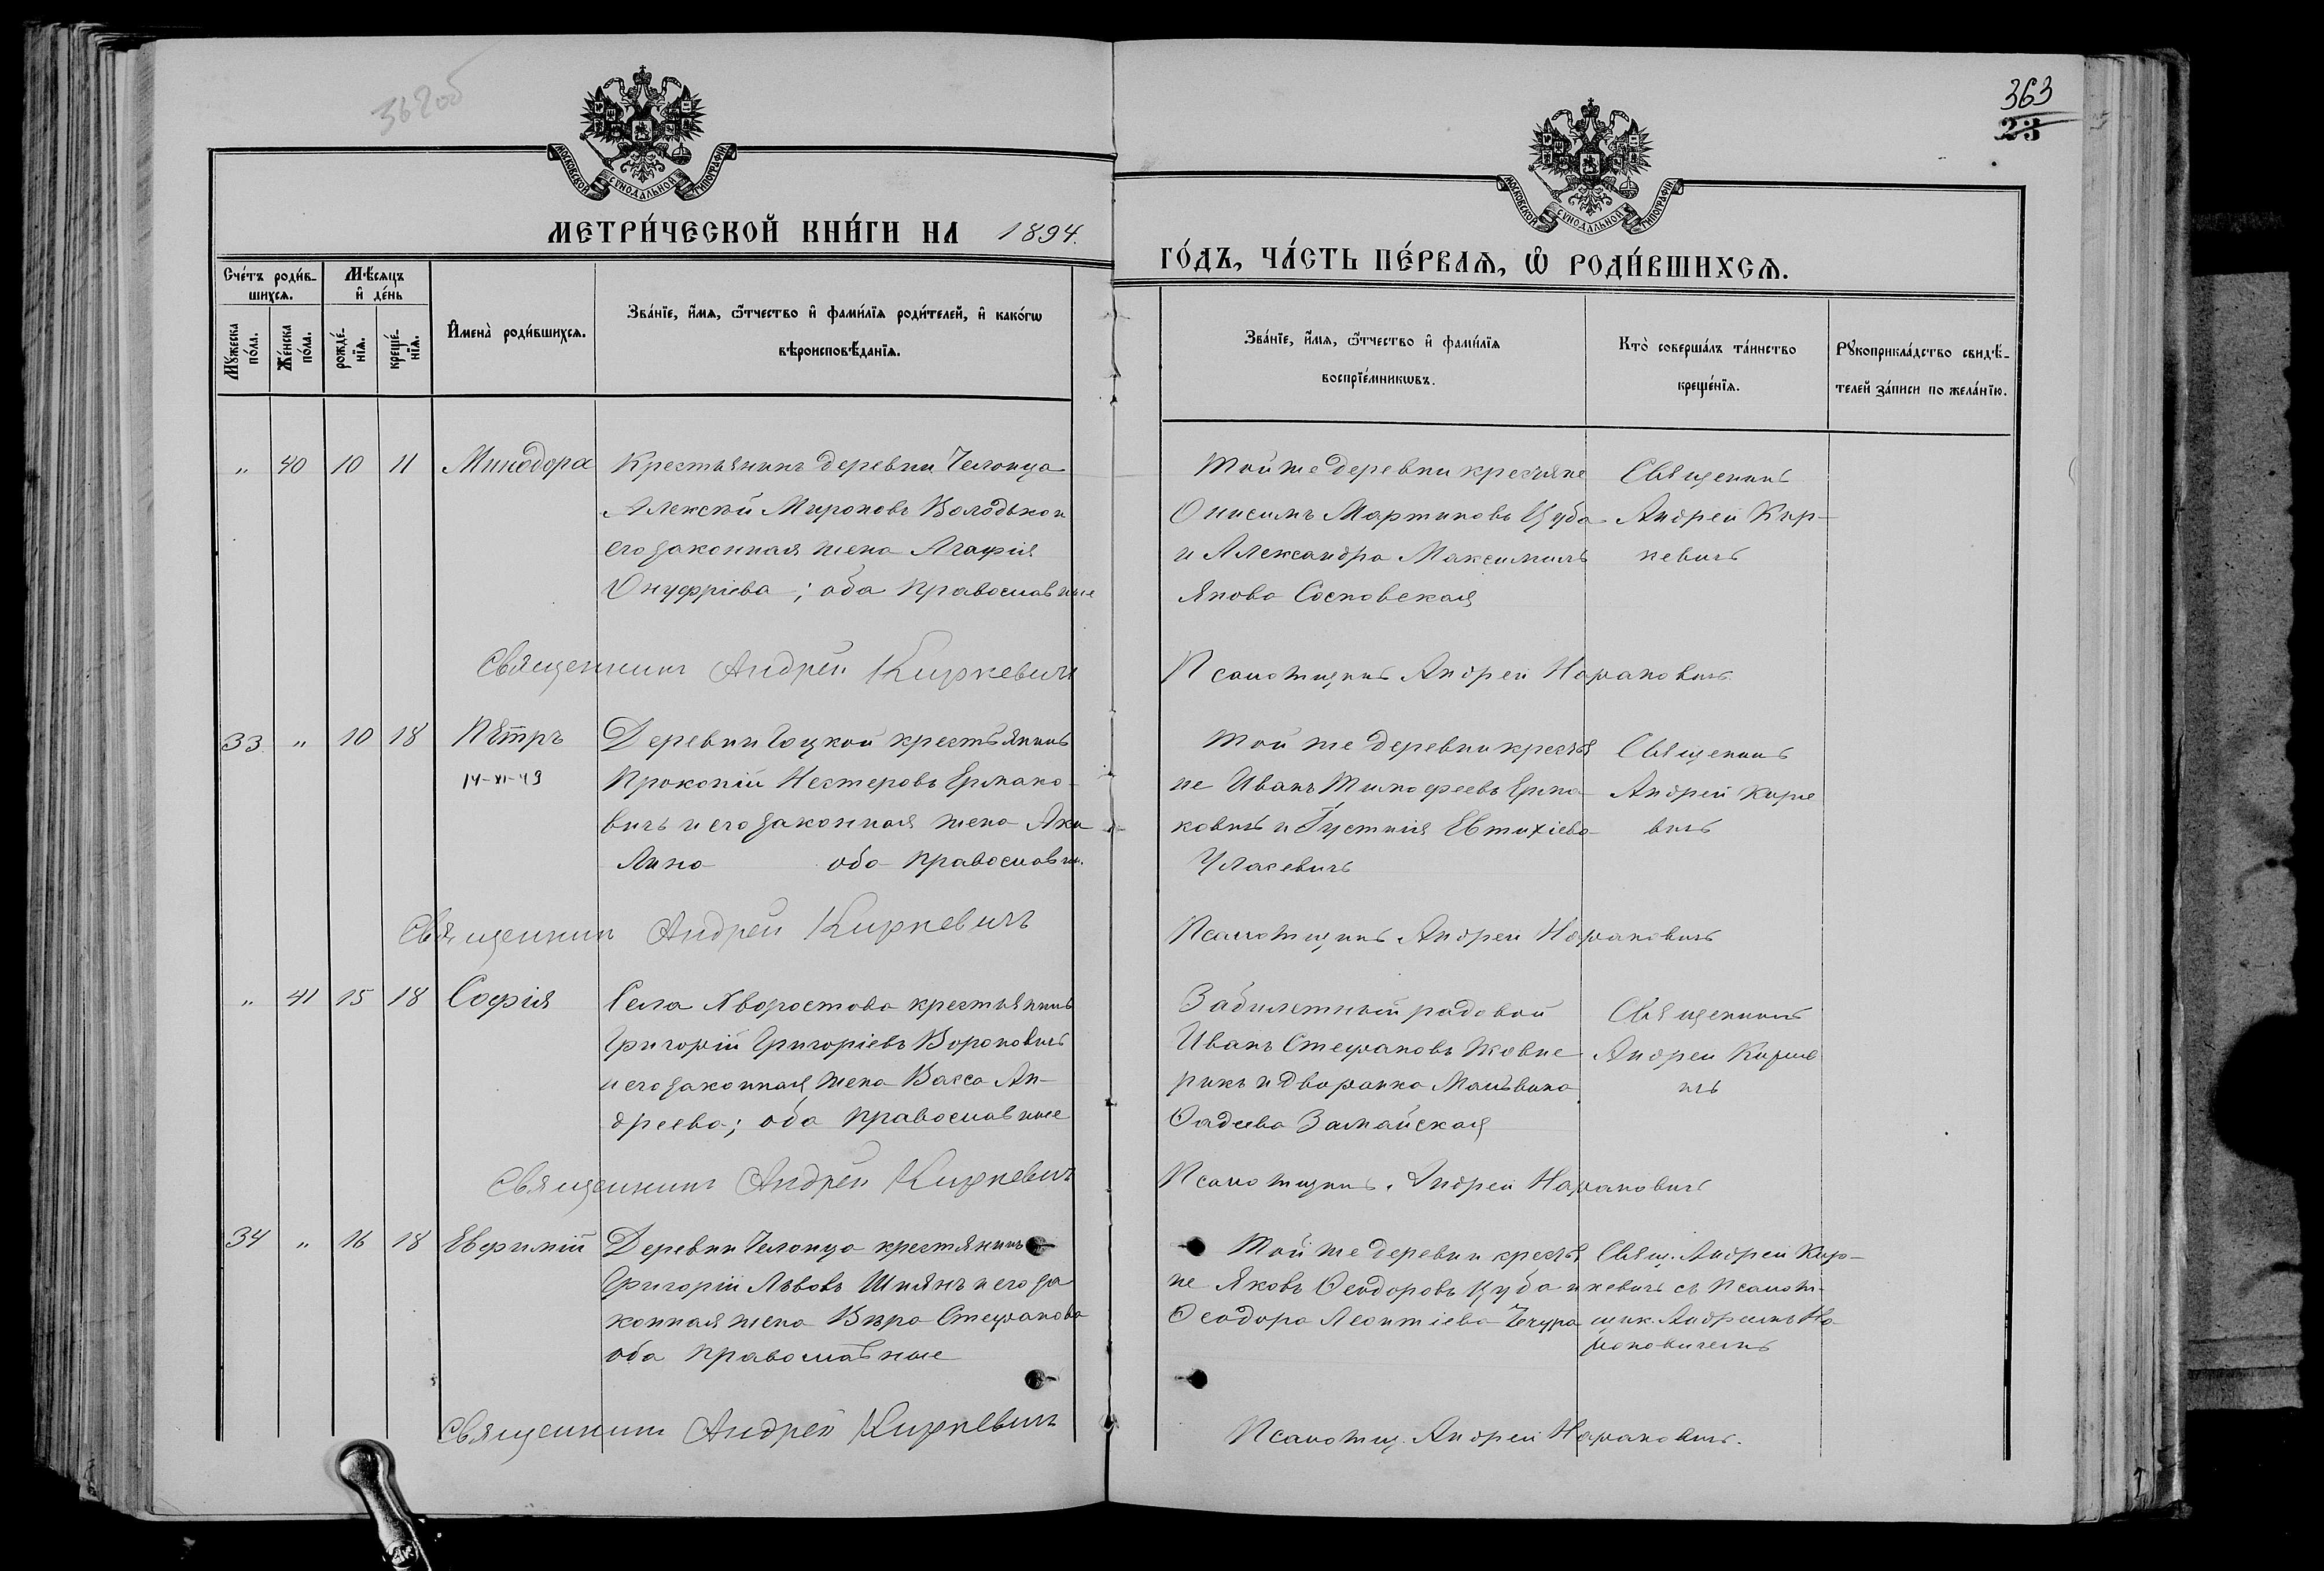 362об
363
23
МОСКОВСКОЙ СѴНОДАЛЬНОЙ ТИПОГРАФІИ
МЕТРИ́ЧЕСКОЙ КНИ́ГИ НА 1894.
МОСКОВСКОЙ СѴНОДАЛЬНОЙ ТИПОГРАФІИ
ГО́ДЪ, ЧА́СТЬ ПЕ́РВАѦ, Ѡ҆ РОДИ́ВШИХСѦ.
Сче́тъ роди́в-
шихсѧ.
Мѣ́сѧцъ
и҆ де́нь
Мꙋ́жеска
по́ла.
Же́нска
по́ла.
рожде́-
нїѧ.
креще́-
нїѧ.
И҆мена̀ роди́вшихсѧ.
Зва́нїе, и҆́мѧ, ѻ҆́тчество и҆ фами́лїѧ роди́телей, и҆ како́гѡ
вѣроисповѣ́данїѧ.
Зва́нїе, и҆́мѧ, ѻ҆́тчество и҆ фами́лїѧ
воспрїе́мникѡвъ.
Кто̀ соверша́лъ та́инство
креще́нїѧ.
Рꙋкоприкла́дство свидѣ́-
телей за́писи по жела́нїю.
„ 40 10 11 Минодора
Крестьянинъ деревни Челонца
Алексѣй Мироновъ Володько и
его законная жена Агафія
Онуфріева; оба православные
Той же деревни крестьяне
Онисимъ Мартиновъ Цуба
и Александра Максимил
янова Сосновская
Священникъ
Андрей Кир-
кевичъ
Священникъ Андрей Киркевичъ
Псаломщикъ Андрей Нарановичъ
33 „ 10 18 Пётръ
14-XI-49
Деревни Гоцкой крестьянинъ
Прокопій Нестеровъ Ермако-
вичъ и его законная жена Аки
лина оба православн.
Той же деревни крестья
не Иванъ Тимофеевъ Ерма
ковичъ и Іустинія Евтихіева
Уласевичъ
Священникъ
Андрей Кирке
вичъ
Священникъ Андрей Киркевичъ
Псаломщикъ Андрей Нарановичъ
„ 41 15 18 Софія
Села Хворостова крестьянинъ
Григорій Григоріевъ Вороновичъ
и его законная жена Васса Ан-
дреева; оба православные
Забилетный рядовой
Иванъ Стефановъ Жовне
рикъ и дворянка Мальвина
Фадеева Замайская
Священникъ
Андрей Киркев
ичъ
Священникъ Андрей Киркевичъ
Псаломщикъ Андрей Нарановичъ
34 „ 16 18 Евфимій
Деревни Челонца крестянинъ
Григорій Львовъ Шиянъ и его за
конная жена Вѣра Стефанова
оба православные
Той же деревни крестья
не Яковъ Феодоровъ Цуба и
Феодора Леонтіева Чечура
Свящ. Андрей Кир-
кевичъ съ псалом-
щик. Андреемъ На-
рановичемъ
Священникъ Андрей Киркевичъ
Псаломщ. Андрей Нарановичъ.